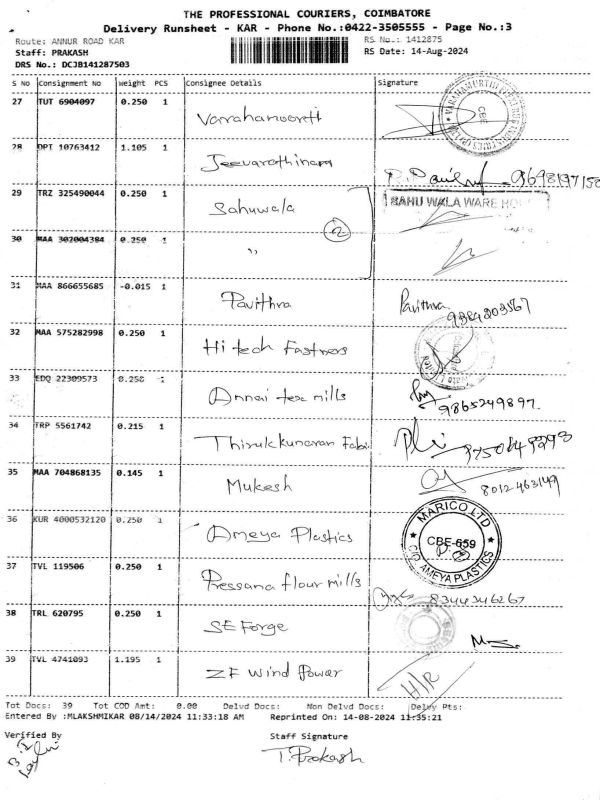 THE PROFESSIONAL COURIERS, COIMBATORE
Delivery Runsheet - KAR - Phone No.:0422-3505555 - Page No.:3
Route: ANNUR ROAD KAR RS No.: 1412875
Staff: PRAKASH RS Date: 14-Aug-2024
DRS No.: DCJB141287503
S No Consignment No Weight PCS Consignee Details Signature
27 TUT 6904097 0.250 1 Varahamoorti
CBE
28 DPT 10763412 1.105 1 Jeevarathinam
29 TRZ 325490044 0.250 1 Sahuwala SAHU WALA WARE
2
30 MAA 302004384 0.250 1 "
31 MAA 866655685 -0.015 1 Pavithra Pavithra
32 MAA 575282998 0.250 1 Hi tech Fastners
33 EDQ 22309573 0.250 1 Annai tex mills 9865249897.
34 TRP 5561742 0.215 1 Thirukkumaran Fabi
35 MAA 704868135 0.145 1 Mukesh 8012463149
36 KUR 4000532120 0.250 1 Ameya Plastics MARICO LTD
CBE-659
C/O AMEYA PLASTICS
37 TVL 119506 0.250 1 Pressana flour mills 8344346267
38 TRL 620795 0.250 1 SE Forge
39 TVL 4741093 1.195 1 ZF Wind Power H/R
Tot Docs: 39 Tot COD Amt: 0.00 Delvd Docs: Non Delvd Docs: Delvy Pts:
Entered By :MLAKSHMIKAR 08/14/2024 11:33:18 AM Reprinted On: 14-08-2024 11:35:21
Verified By Staff Signature
T. Prakash